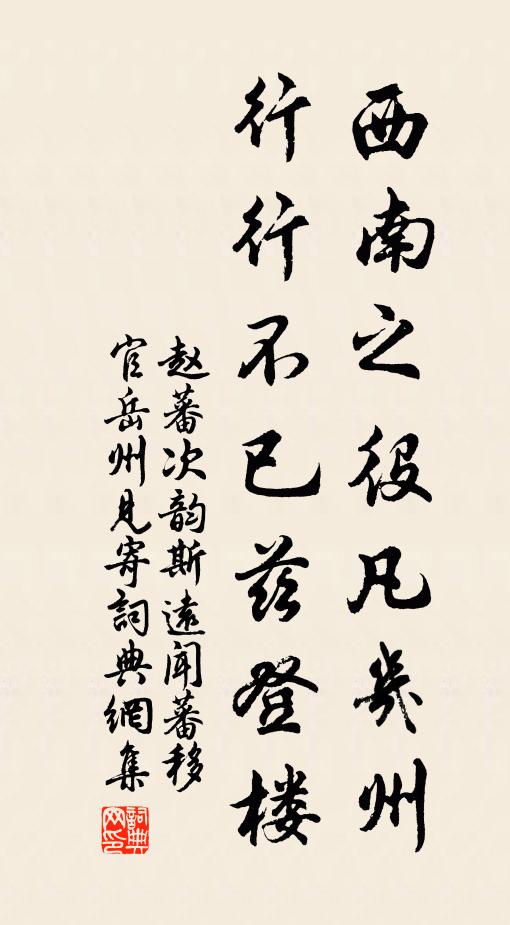 西南之役凡幾州
行行不已茲登楼
赵蕃次韵斯遠闻蕃移
官岳州見寄詞典網集
詞典网印